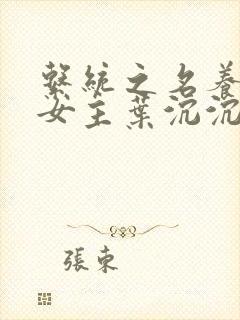 繫統之名養
女主葉沉沉
張東